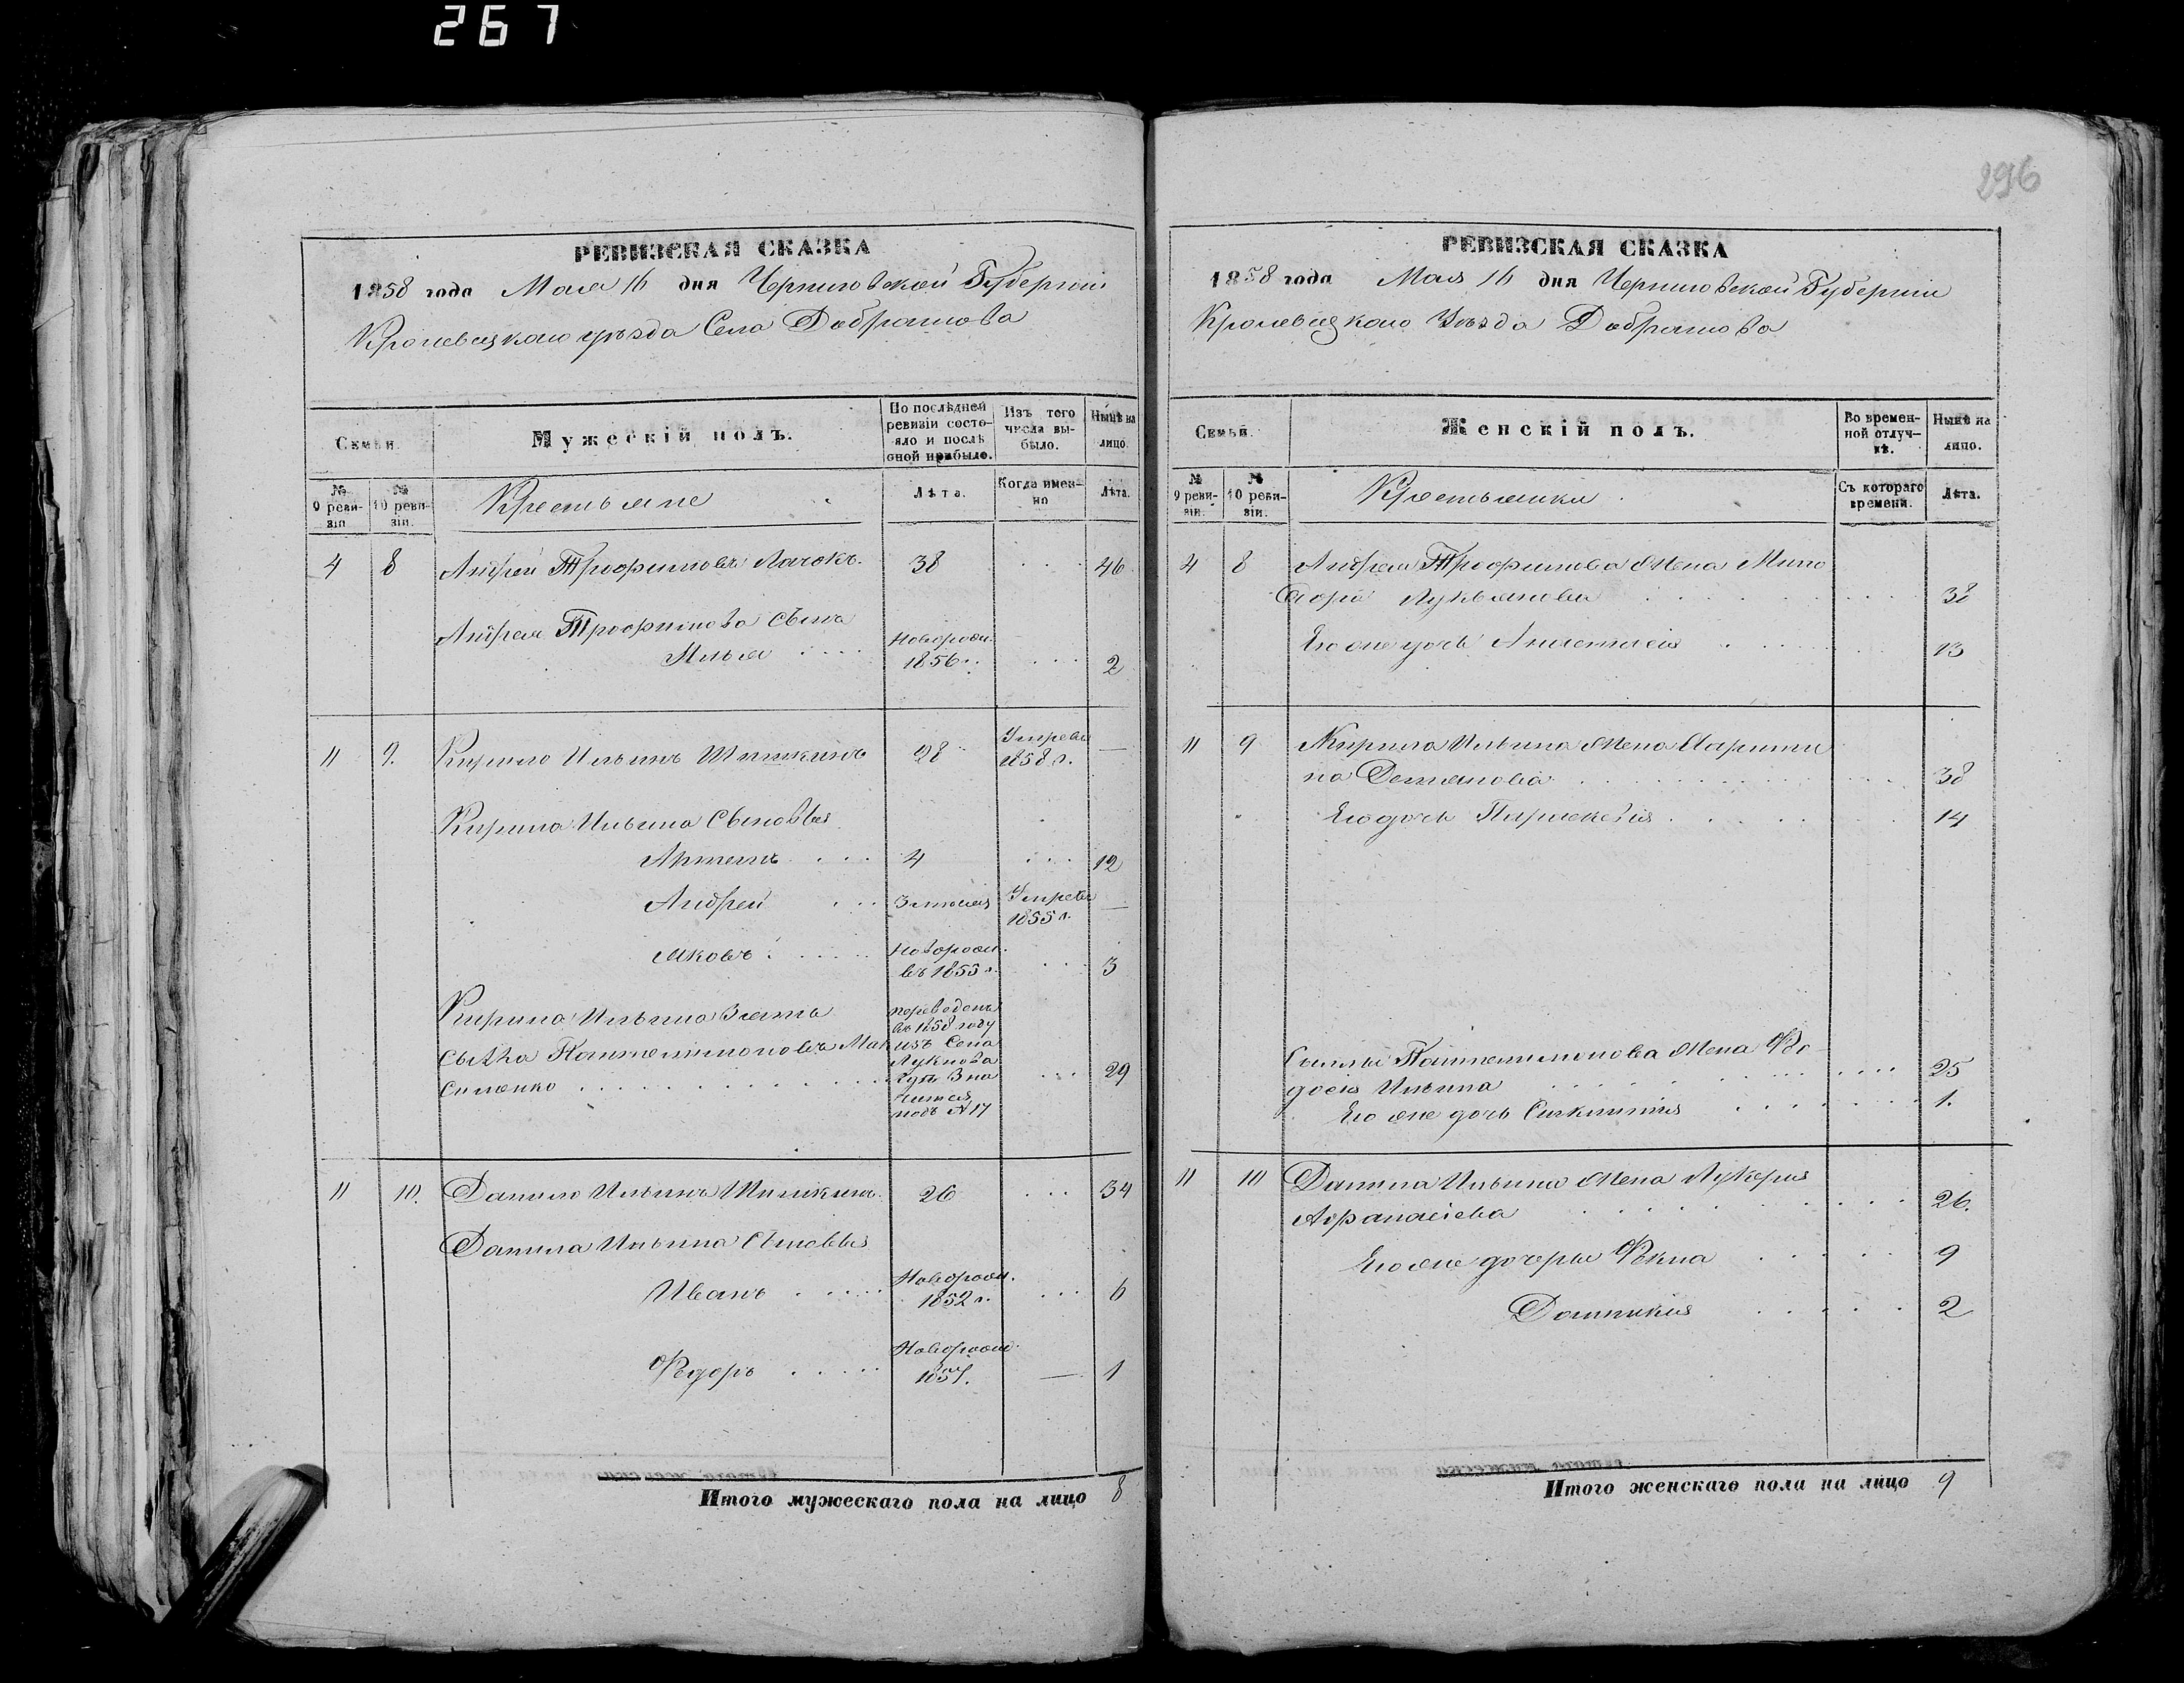 267
296
РЕВИЗСКАЯ СКАЗКА
1858 года Мая 16 дня Черниговской Губерніи
Кролевецкаго уѣзда Села Добратова
Семьи.
Мужескій полъ.
По послѣдней ревизіи состояло и послѣ оной прибыло.
Изъ того числа выбыло.
Нынѣ на лицо.
№ 9 ревизіи
№ 10 ревизіи.
Крестьяне
Лѣта.
Когда именно
Лѣта.
4 8 Андрей Трофимовъ 38 46
Андрея Трофимова сынъ
Илья Новорожд. 1856 г. 2
11 9. Кирило Ильинъ Шишкинъ 28 Умре въ 1858 г. —
Кирила Ильина Сыновья
Артемъ 4 12
Андрей Умре въ 1855 г. —
Яковъ Новорожд. въ 1855 г. 3
Кирила Ильина Зять
переведенъ въ 1858 году изъ Села
Пантелимоновъ
29
подъ № 17
11 10. Данило Ильинъ Шишкинъ. 26 34
Данила Ильина Сыновья
Иванъ Новорожд. 1852 г. 6
Ѳедоръ Новорожд. 1857. — 1
Итого мужескаго пола на лицо 8
РЕВИЗСКАЯ СКАЗКА
1858 года Мая 16 дня Черниговской Губерніи
Кролевецкаго Уѣзда Добратова
Семьи.
Женскій полъ.
Во временной отлучкѣ.
Нынѣ на лицо.
№ 9 ревизіи.
№ 10 ревизіи.
Крестьянки
Съ котораго времени.
Лѣта.
4 8 Андрея Трофимова жена
Лукьянова 38
Его же дочь Анастасія 13
11 9 Кирила Ильина жена
на Демянова 38
Его дочь Параскевія 14
Пантелимонова жена Ѳео
досія Ильина 25
Его же дочь 1.
11 10 Данила Ильина жена Лукерія
Афанасіева 26.
Его же дочери Ѳекла 9
Домникія 2
Итого женскаго пола на лицо 9